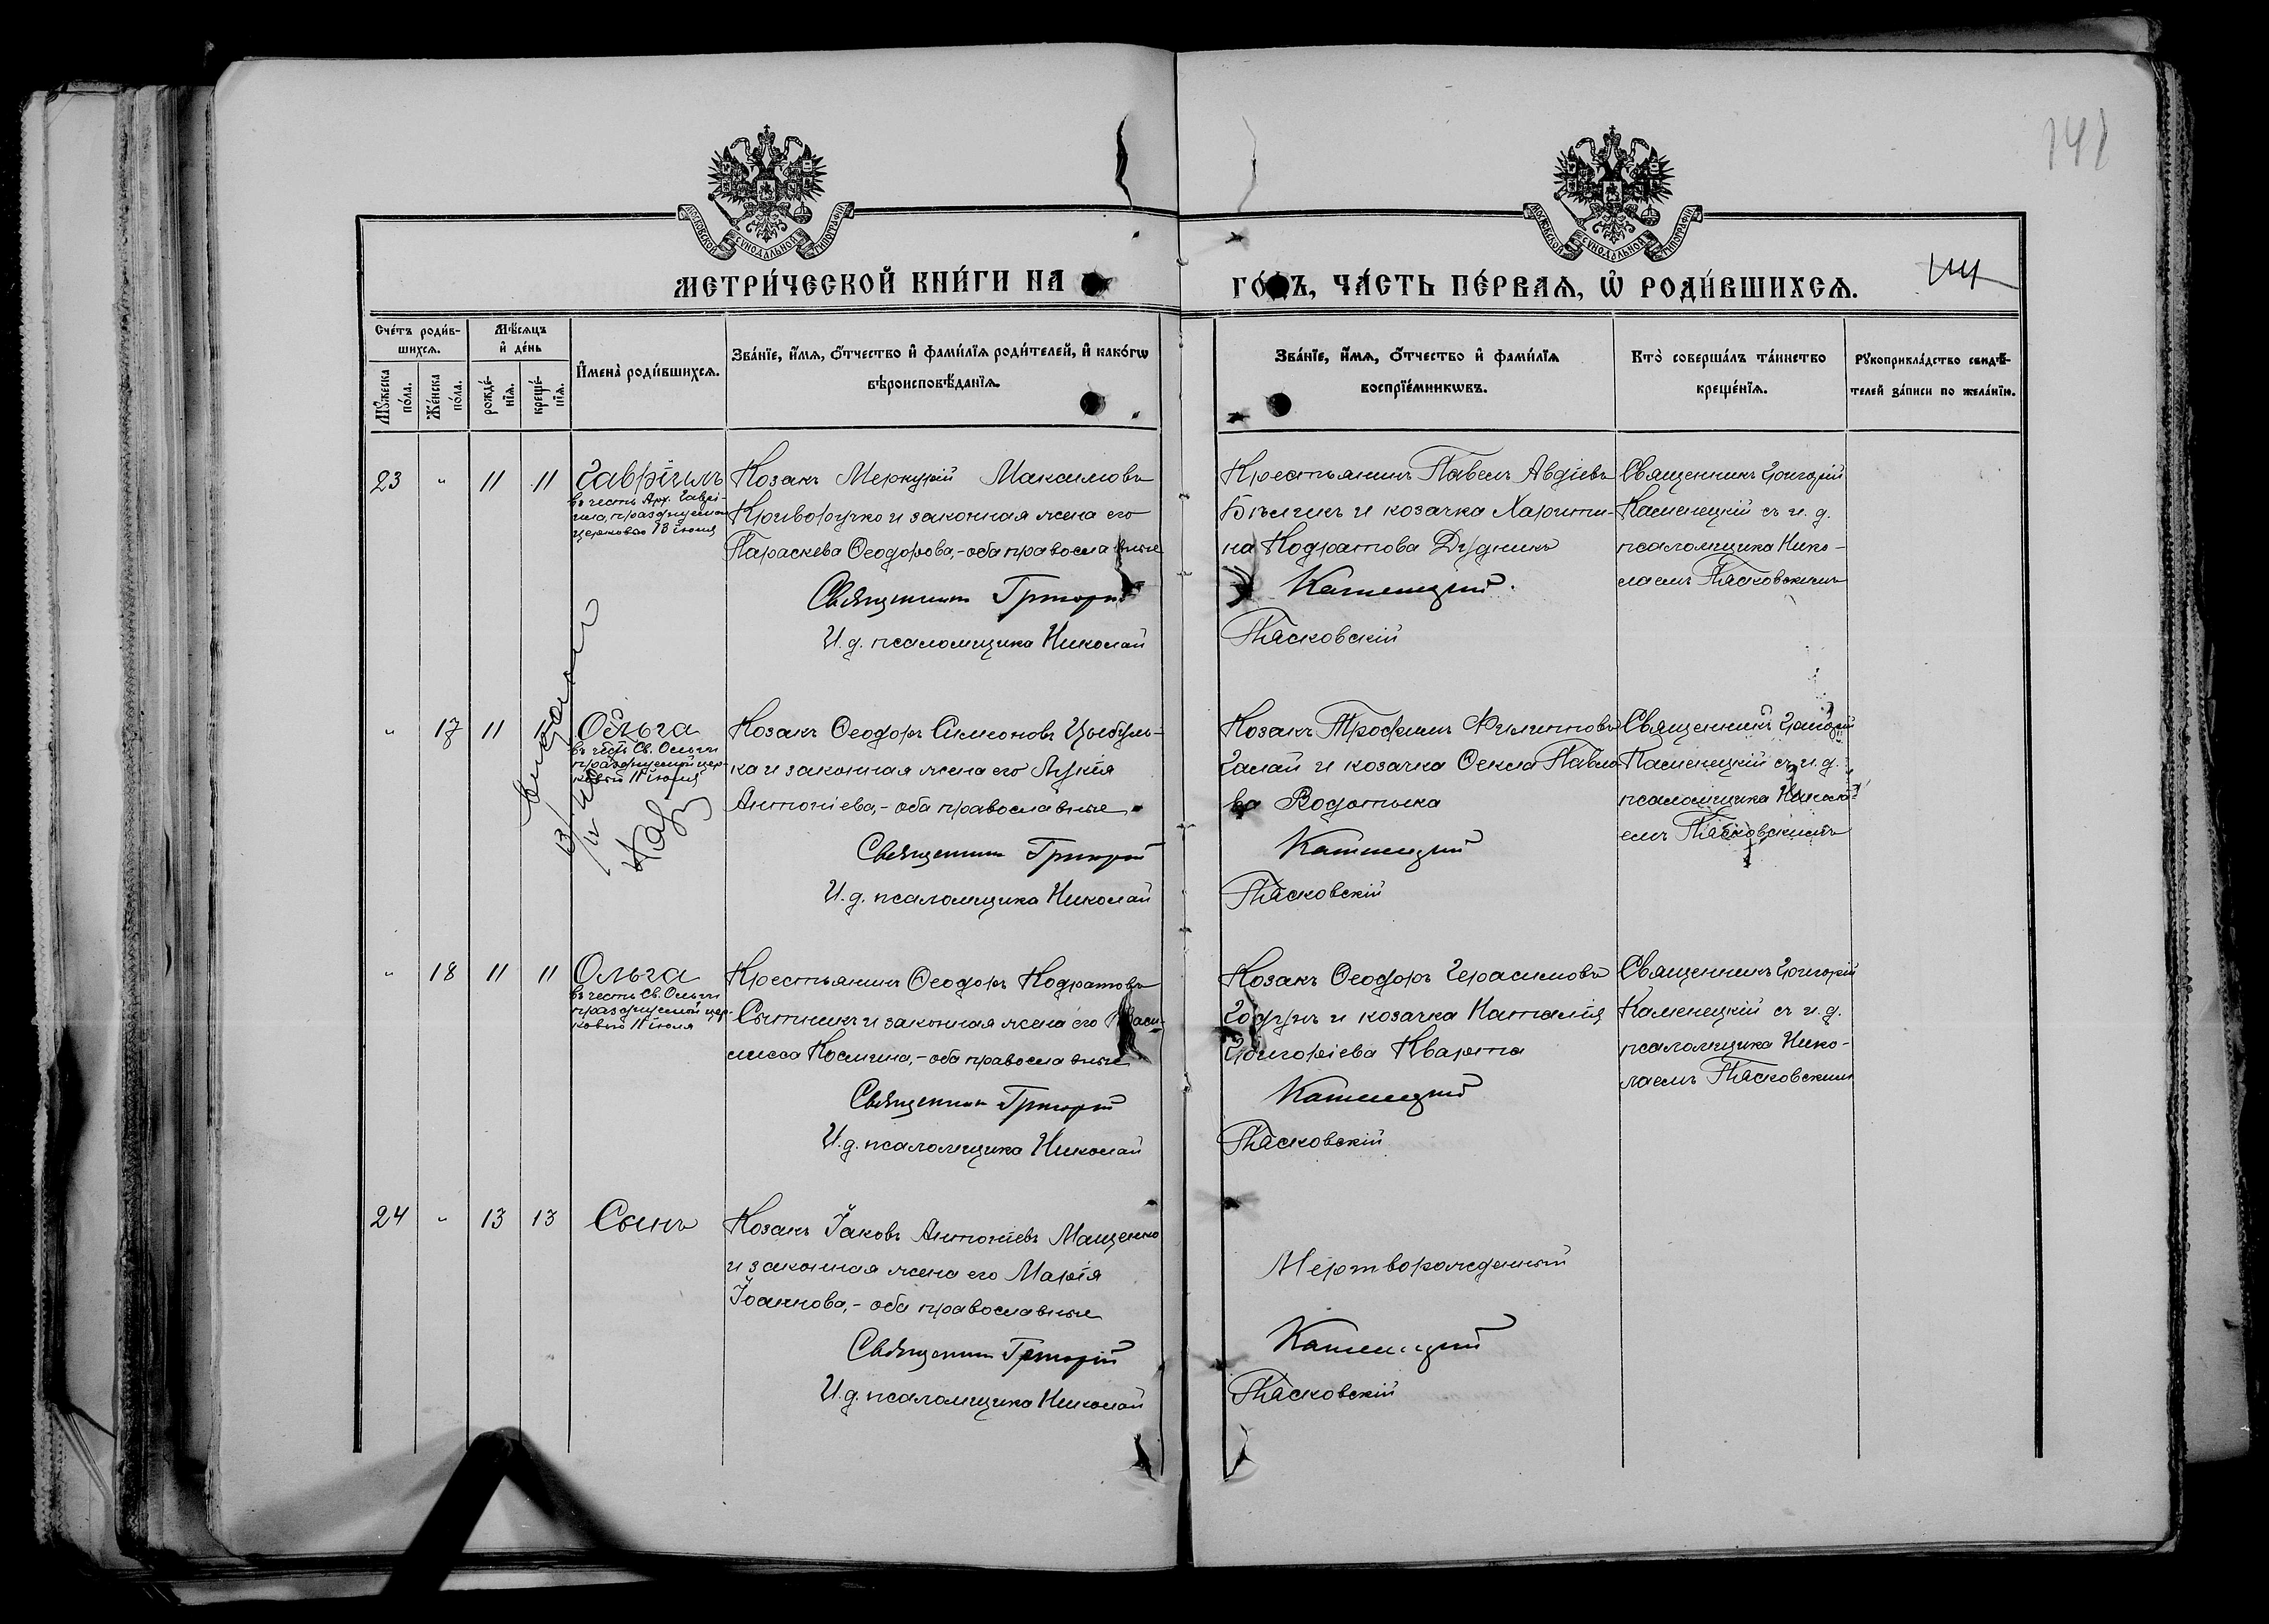 141
МОСКОВСКОЙ СУНОДАЛЬНОЙ ТИПОГРАФІИ
МОСКОВСКОЙ СУНОДАЛЬНОЙ ТИПОГРАФІИ
МЕТРИ́ЧЕСКОЙ КНИ́ГИ НА
ГО́ДЪ, ЧА́СТЬ ПЕ́РВАѦ, Ѡ҆ РОДИ́ВШИХСѦ.
Сче́тъ роди́в-
шихсѧ.
Мѣ́сѧцъ
и҆ де́нь
Мꙋ́жеска
по́ла.
Же́нска
по́ла.
рожде́-
нїѧ.
креще́-
нїѧ.
И҆мена̀ роди́вшихсѧ.
Зва́нїе, и҆́мѧ, ѻ҆́тчество и҆ фами́лїѧ роди́телей, и҆ како́гѡ
вѣроисповѣ́данїѧ.
Зва́нїе, и҆́мѧ, ѻ҆́тчество и҆ фами́лїѧ
воспрїе́мникѡвъ.
Кто̀ соверша́лъ та́инство
креще́нїѧ.
Рꙋкоприкла́дство свидѣ́-
телей за́писи по жела́нїю.
23 " 11 11 Гавріилъ
въ честь Арх. Гаврі-
ила, празднуемаго
церковью 13 іюля
Козакъ Меркурій Максимовъ
Криворучко и законная жена его
Параскева Ѳеодорова,- оба православные
Священникъ Григорій
И.д. псаломщика Николай
Крестьянинъ Павелъ Авдіевъ
Бѣлчикъ и козачка Харити-
на Кодратова Дудникъ
Каменецкій
Пясковскій
Священникъ Григорій
Каменецкій съ и.д.
псаломщика Нико-
лаемъ Пясковскимъ
" 17 11 11 Ольга
въ честь Св. Ольги
празднуемой цер-
ковью 11 іюля
Козакъ Ѳеодоръ Симеоновъ Цыбуль-
ка и законная жена его Лукія
Антоніева,- оба православные
Священникъ Григорій
И.д. псаломщика Николай
Козакъ Трофимъ Филипповъ
Галай и козачка Ѳекла Павло-
ва Водотыка
Каменецкій
Пясковскій
Священникъ Григорій
Каменецкій съ и.д.
псаломщика Никола-
емъ Пясковскимъ
" 18 11 11 Ольга
въ честь Св. Ольги
празднуемой цер-
ковью 11 іюля
Крестьянинъ Ѳеодоръ Кодратовъ
Сытникъ и законная жена его Васи-
лисса Космина,- оба православные
Священникъ Григорій
И.д. псаломщика Николай
Козакъ Ѳеодоръ Герасимовъ
Годунъ и козачка Наталія
Григоріева Кварта
Каменецкій
Пясковскій
Священникъ Григорій
Каменецкій съ и.д.
псаломщика Нико-
лаемъ Пясковскимъ
24 " 13 13 Сынъ
Козакъ Іаковъ Антоніевъ Мащенко
и законная жена его Марія
Іоаннова,- оба православные
Священникъ Григорій
И.д. псаломщика Николай
Мертворожденный
Каменецкій
Пясковскій